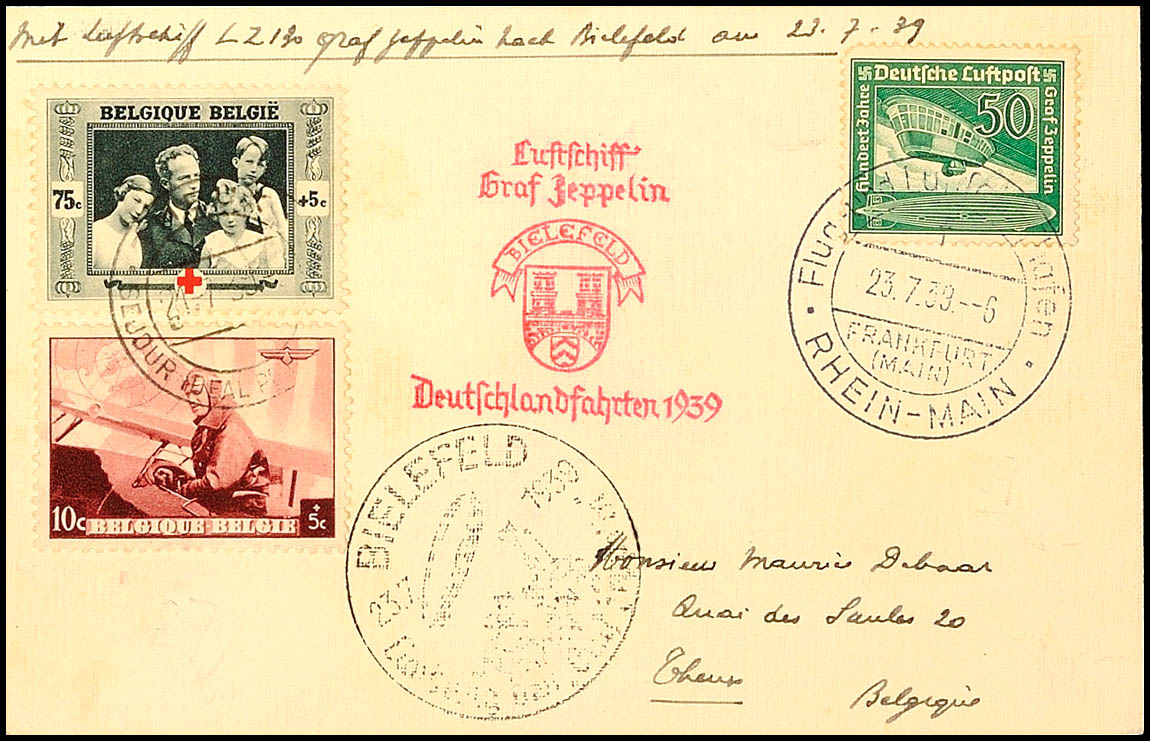 Mit Luftschiff LZ130 Graf Zeppelin nach Bielefeld am 23.7.39
BELGIQUE BELGIË
75c +5c
21 7 39
SEJOUR IDEAL
10c BELGIQUE BELGIË +5c
Luftschiff
Graf Zeppelin
BIELEFELD
Deutschlandfahrten 1939
Deutsche Luftpost
Hundert Jahre
50
Graf Zeppelin
Flug- und Luftschiffhafen
23.7.39.--6
FRANKFURT
(MAIN)
RHEIN-MAIN
BIELEFELD
23.7. 1939
Monsieur Maurice Debaar
Quai des Saules 20
Theux
Belgique